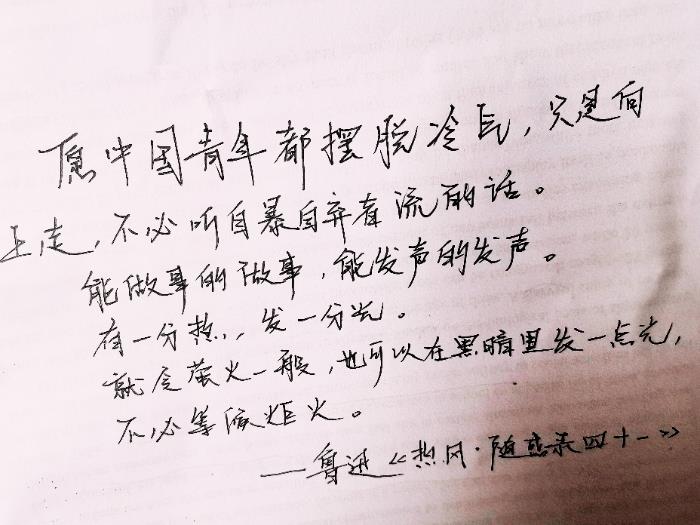 愿中国青年都摆脱冷气，只是向
上走，不必听自暴自弃者流的话。
能做事的做事，能发声的发声。
有一分热，发一分光。
就令萤火一般，也可以在黑暗里发一点光，
不必等候炬火。
——鲁迅《热风·随感录四十一》